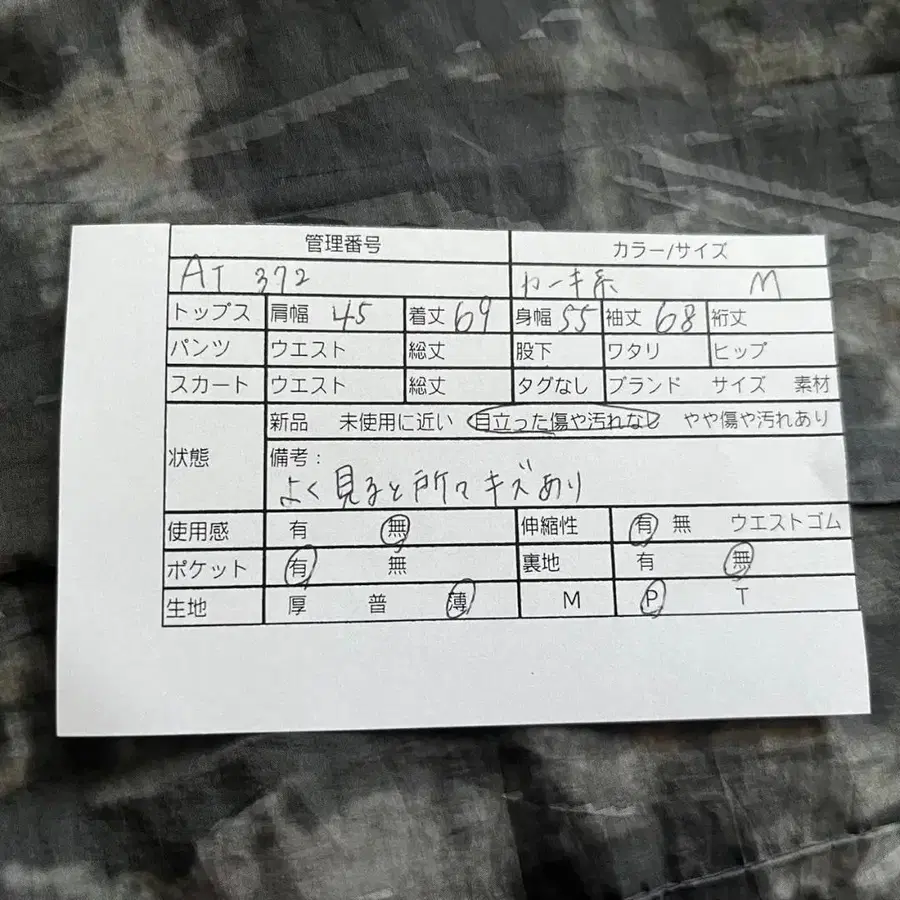 管理番号 カラー/サイズ
AT 372 カーキ系 M
トップス 肩幅 45 着丈 69 身幅 55 袖丈 68 裄丈
パンツ ウエスト 総丈 股下 ワタリ ヒップ
スカート ウエスト 総丈 タグなし ブランド サイズ 素材
状態 新品 未使用に近い 目立った傷や汚れなし やや傷や汚れあり
備考：
よく見ると所々キズあり
使用感 有 無 伸縮性 有 無 ウエストゴム
ポケット 有 無 裏地 有 無
生地 厚 普 薄 M P T